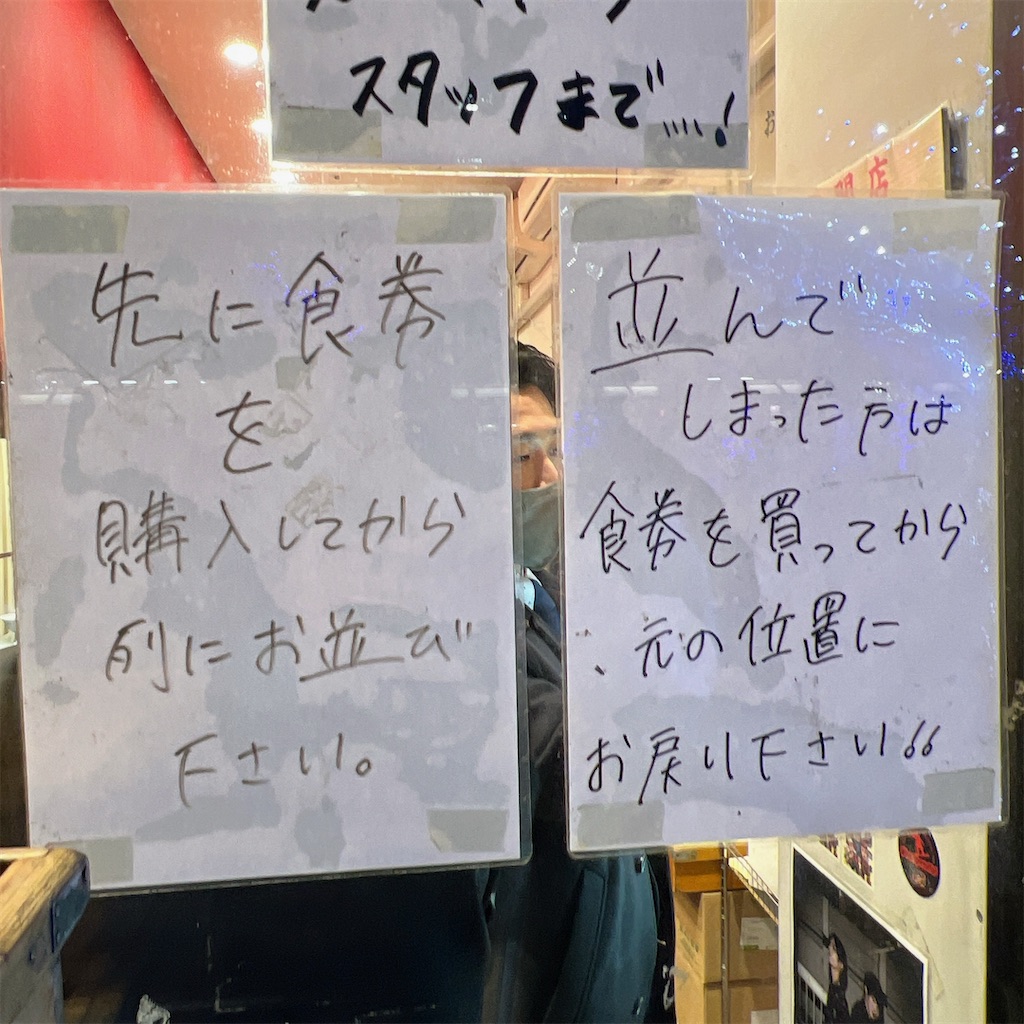 スタッフまで....!
先に食券
を
購入してから
列にお並び
下さい。
並んで
しまった方は
食券を買ってから
元の位置に
お戻り下さい!!